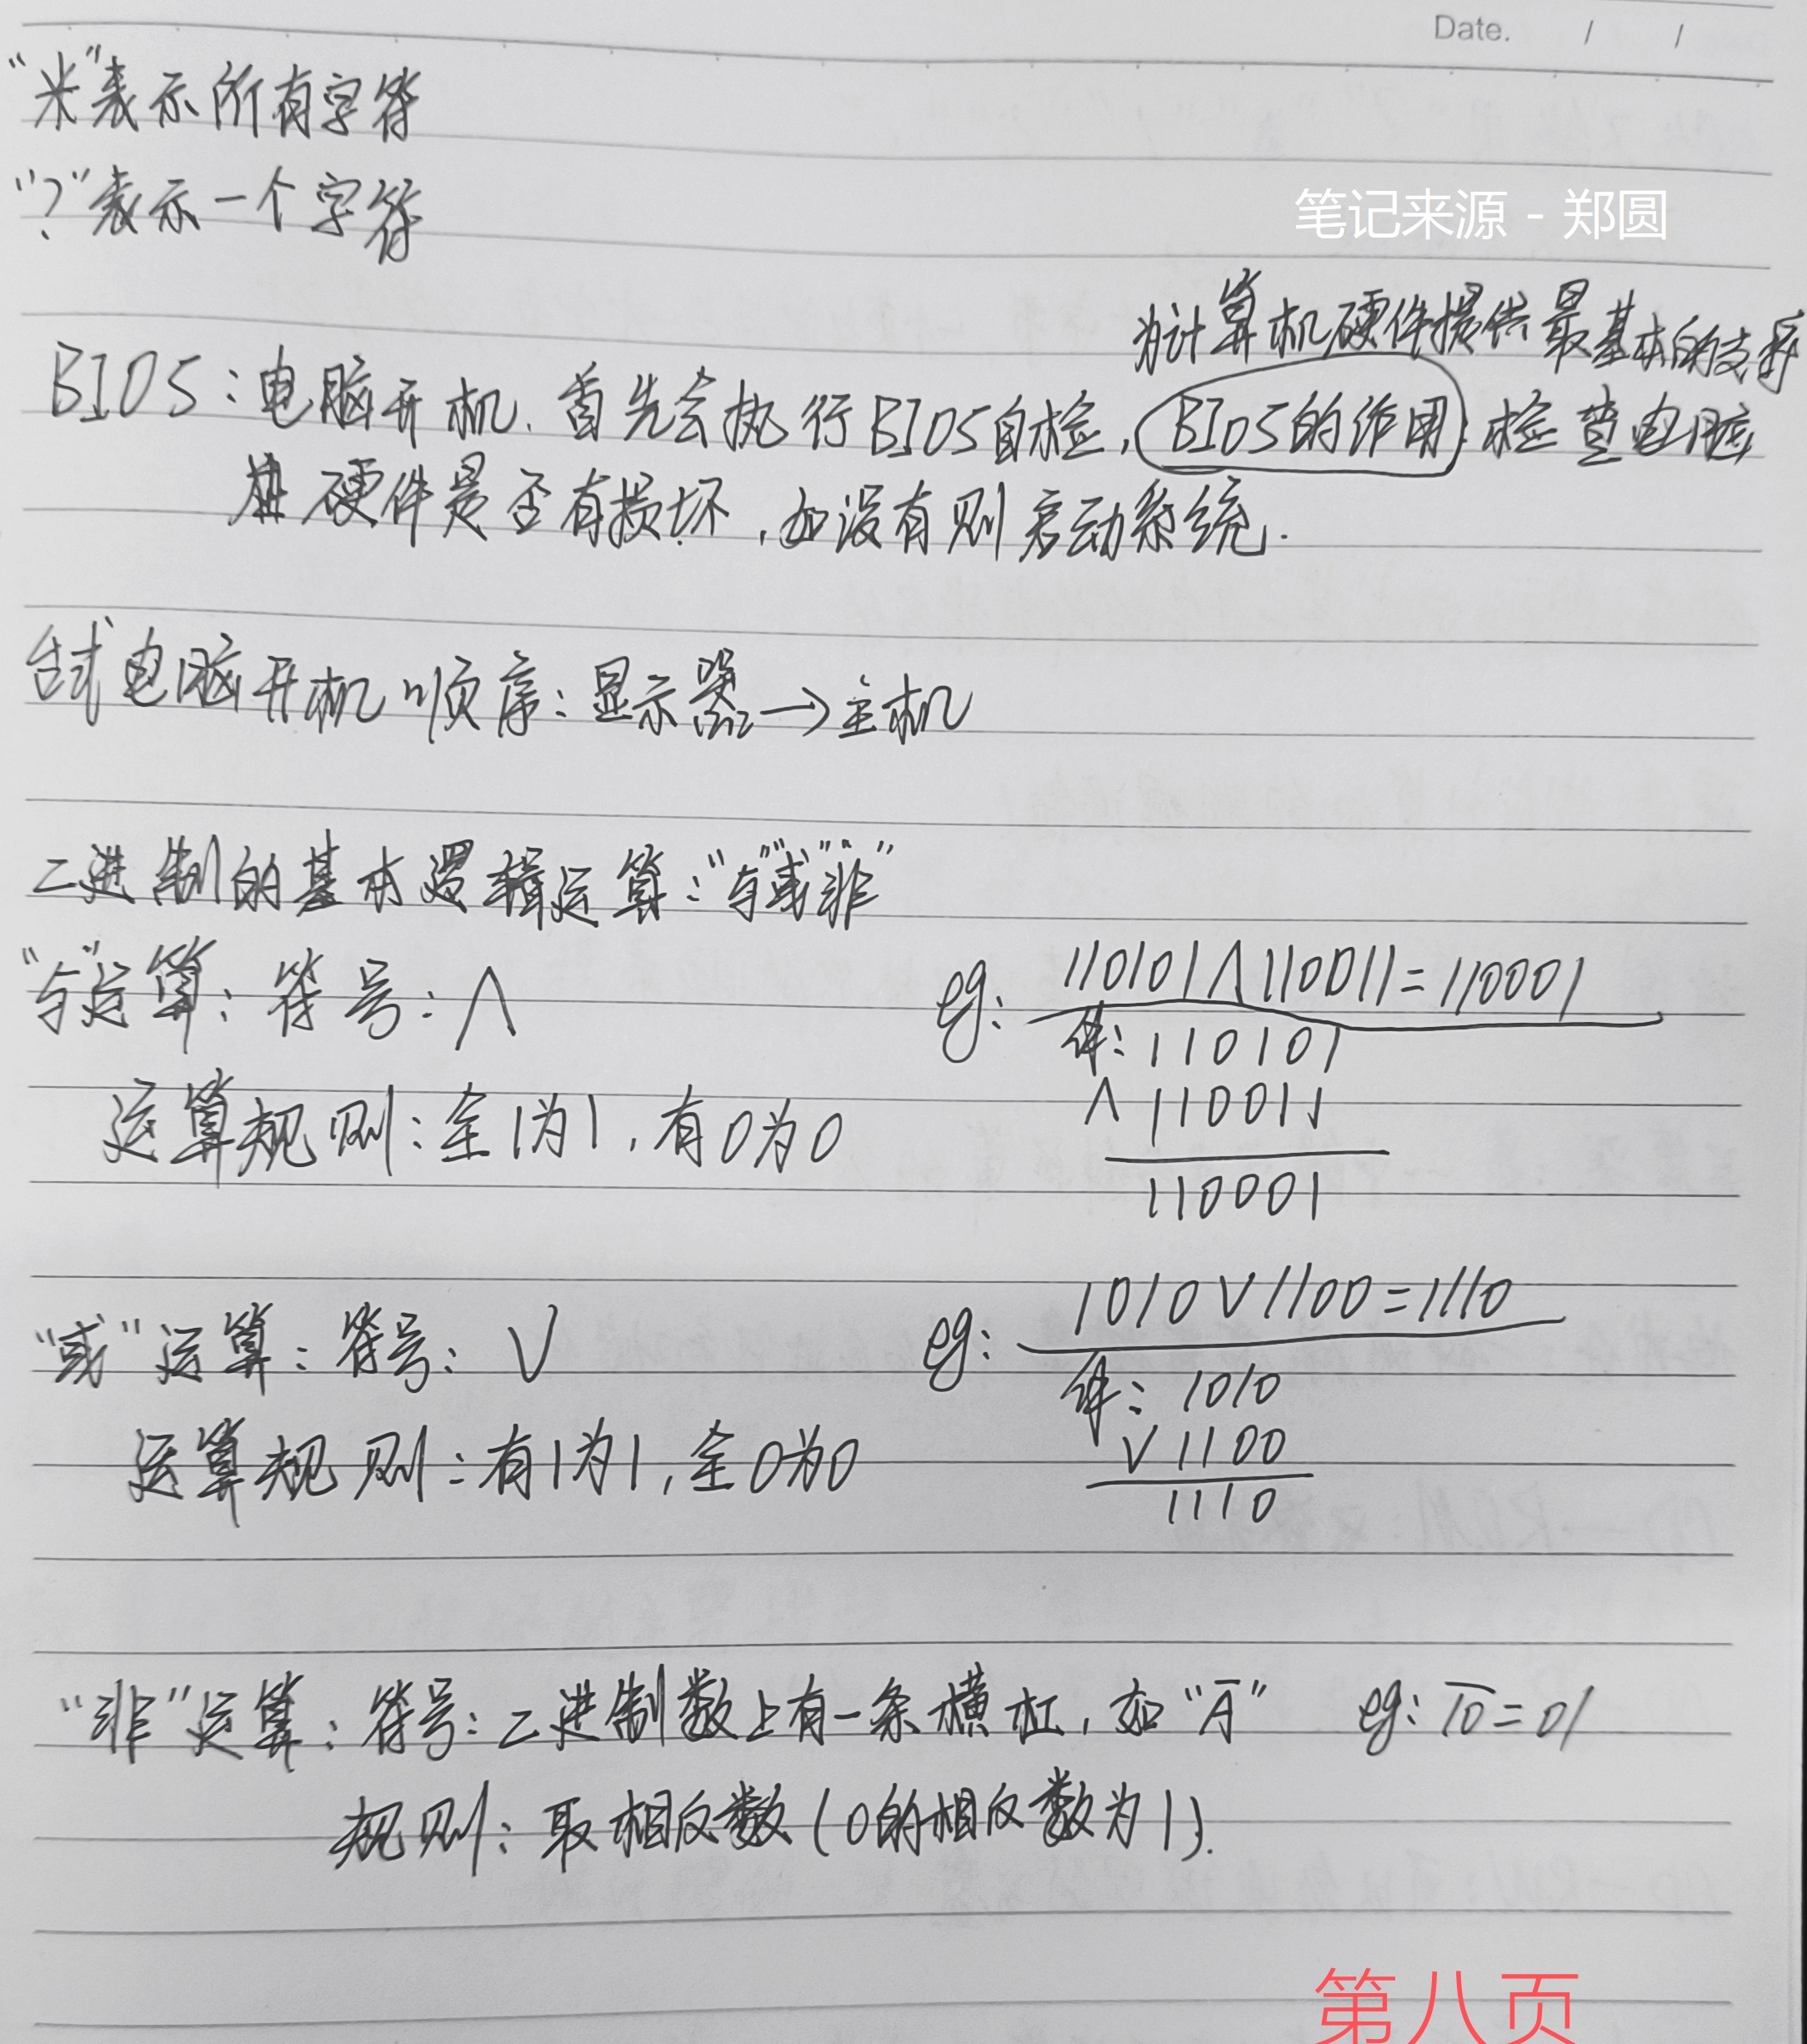 Date. / /
"米"表示所有字符
"?"表示一个字符
笔记来源 - 郑圆
为计算机硬件提供最基本的支持
BIOS:电脑开机,首先会执行BIOS自检,BIOS的作用:检查电脑
硬件是否有损坏,如没有则启动系统.
台式电脑开机顺序:显示器→主机
二进制的基本逻辑运算:"与""或""非"
"与"运算:符号:∧ eg: 110101∧110011=110001
解:110101
运算规则:全1为1,有0为0 ∧ 110011
110001
"或"运算:符号:∨ eg: 1010∨1100=1110
解:1010
运算规则:有1为1,全0为0 ∨ 1100
1110
"非"运算:符号:二进制数上有一条横杠,如"Ā" eg: 1̅0̅=01
规则:取相反数(0的相反数为1).
第八页